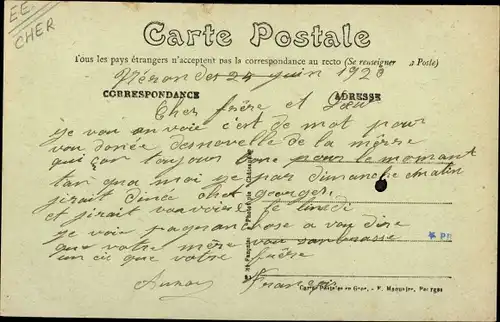 EE.
CHER
Carte Postale
Tous les pays étrangers n'acceptent pas la correspondance au recto (Se renseigner à Poste)
24 juin 1928
CORRESPONDANCE
ADRESSE
Cher frère et Sœur
je vou en voie c'est de mot pour
vou donée des novelle de la mêrre
qui son toujour bone pour le momant
tan qua moi je par dimanche matin
jirait diné chet georges
et jirait vou voire le lundi
je voi pa gran chose a vou dire
que votre mère vou sanbrasse
un ci que votre frère
François
Carte Postale en Gros. - F. Maquaire, Bourges